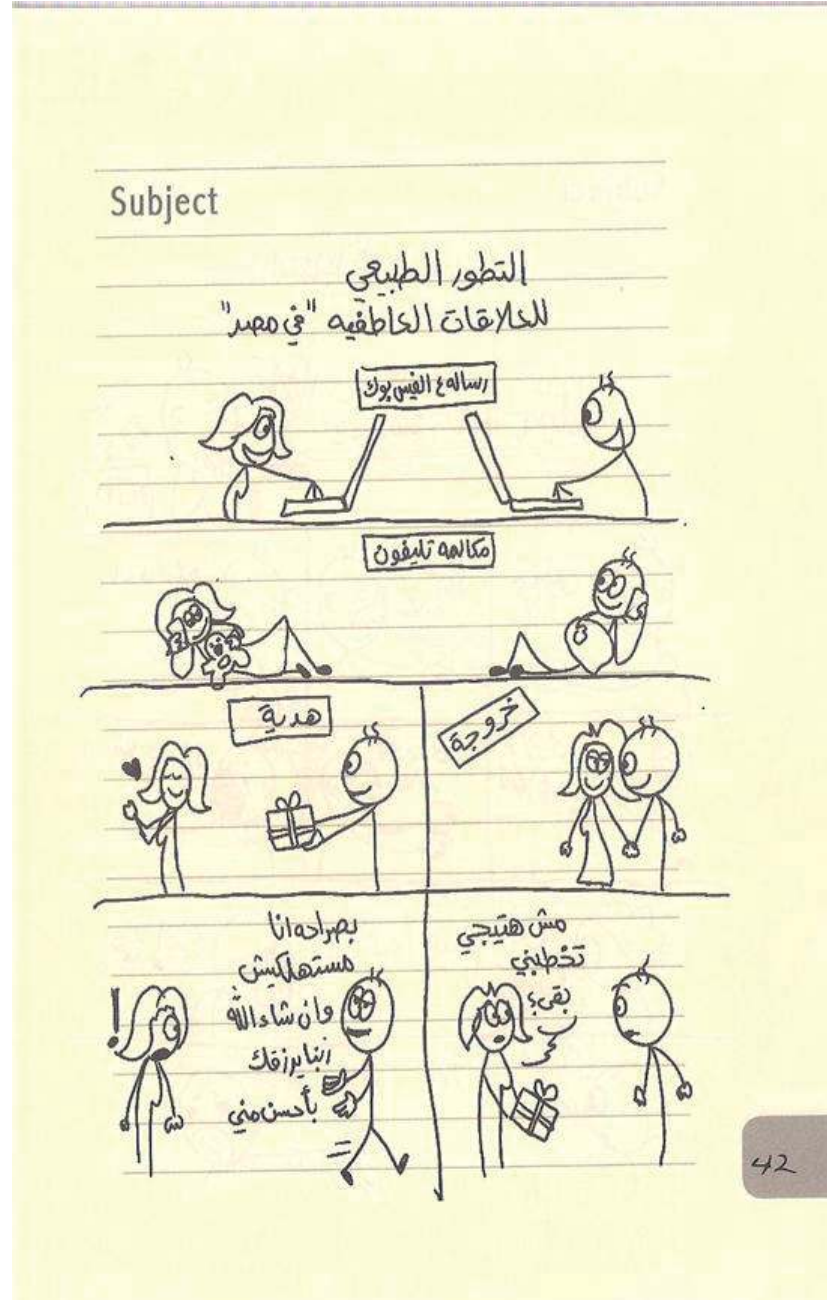 Subject
التطور الطبيعي
للعلاقات العاطفيه "في مصر"
رساله ع الفيس بوك
مكالمه تليفون
خروجة
هدية
مش هتيجي
تخطبني
بقى؟
بصراحه انا
مستهلكيش
وان شاء الله
ربنا يرزقك
بأحسن مني
!
42